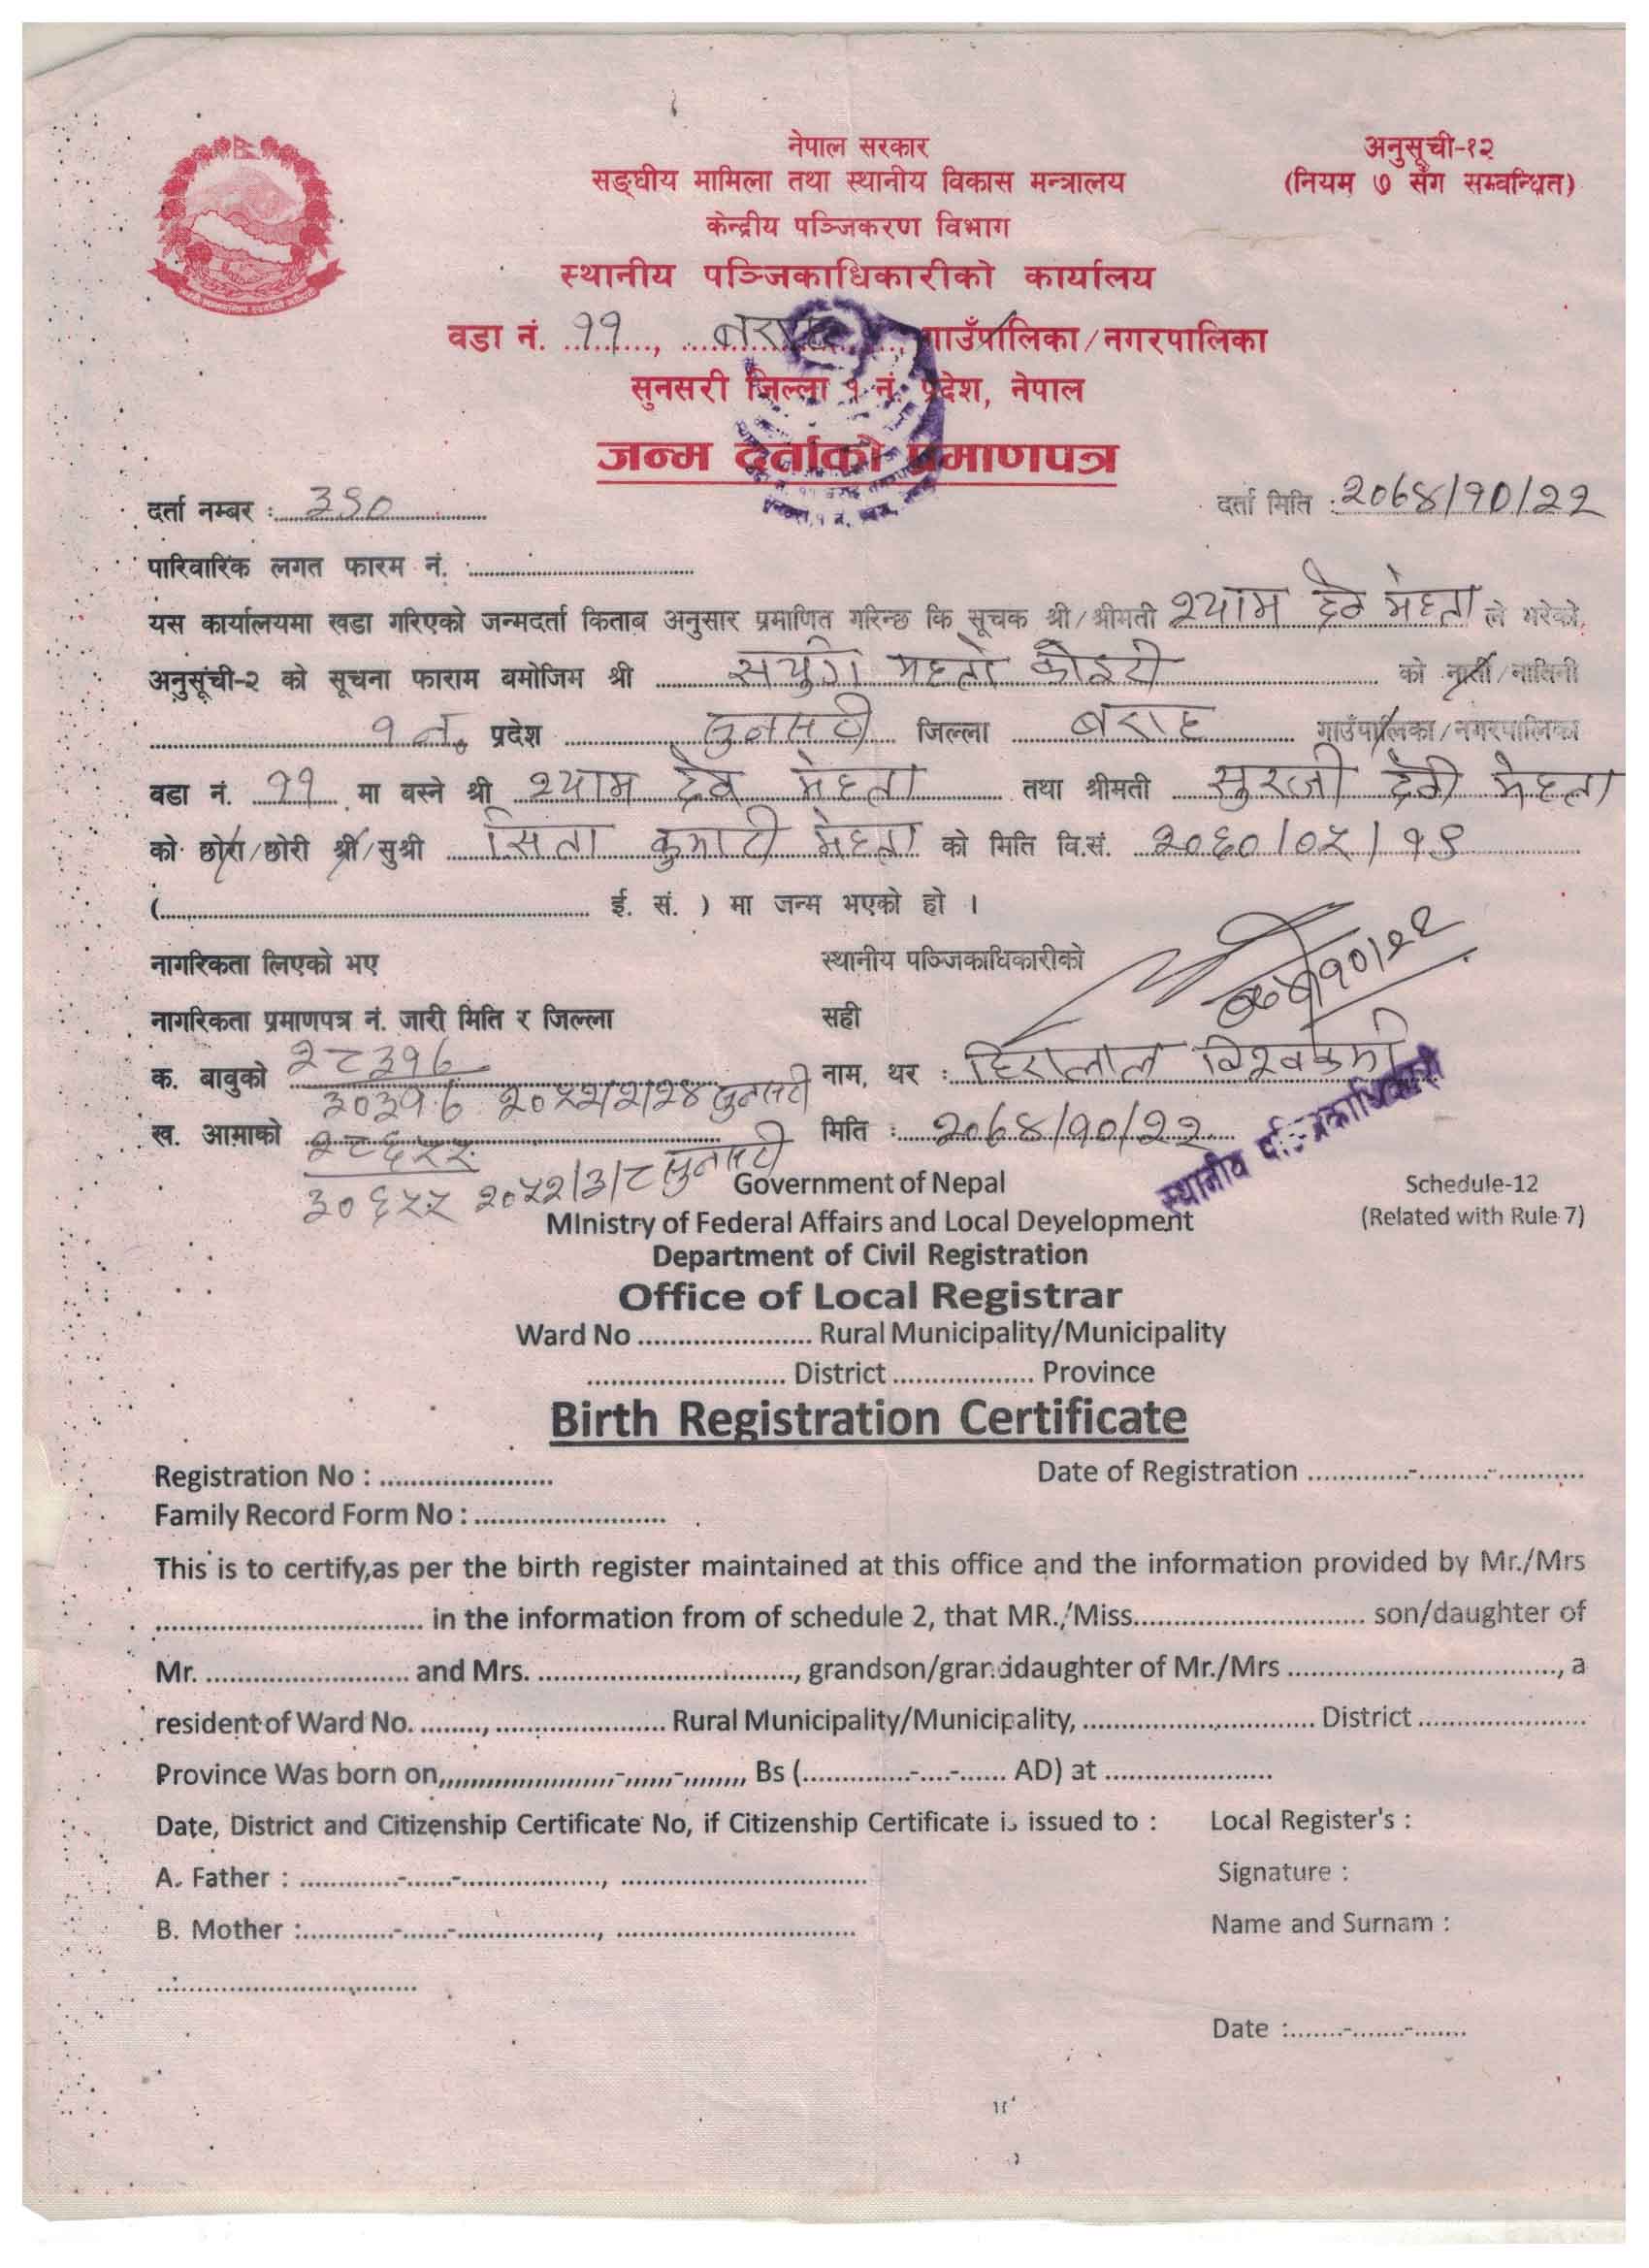 नेपाल सरकार
सङ्घीय मामिला तथा स्थानीय विकास मन्त्रालय
केन्द्रीय पञ्जिकरण विभाग
अनुसूची-१२
(नियम ७ सँग सम्वन्धित)
स्थानीय पञ्जिकाधिकारीको कार्यालय
वडा नं. ११, बराह गाउँपालिका/नगरपालिका
सुनसरी जिल्ला १ नं. प्रदेश, नेपाल
जन्म दर्ताको प्रमाणपत्र
दर्ता नम्बर :
दर्ता मिति : /१०/२२
पारिवारिक लगत फारम नं. :
यस कार्यालयमा खडा गरिएको जन्मदर्ता किताब अनुसार प्रमाणित गरिन्छ कि सूचक श्री/श्रीमती श्याम देव मेहता ले भरेको
अनुसूची-२ को सूचना फाराम बमोजिम श्री महतो कोइरी को नाती/नातिनी
१ नं. प्रदेश सुनसरी जिल्ला बराह गाउँपालिका/नगरपालिका
वडा नं. ११ मा बस्ने श्री श्याम देव मेहता तथा श्रीमती सुरजी देवी मेहता
को छोरा/छोरी श्री/सुश्री सिता कुमारी मेहता को मिति वि.सं. २०६०/०५/१९
( ई. सं. ) मा जन्म भएको हो ।
नागरिकता लिएको भए
स्थानीय पञ्जिकाधिकारीको
नागरिकता प्रमाणपत्र नं. जारी मिति र जिल्ला
सही
क. बाबुको २८३१७
३०३१७ २०५२/२/२४ सुनसरी
नाम, थर : हिरालाल विश्वकर्मा
ख. आमाको २८६५५
३०६५५ २०५२/३/८ सुनसरी
मिति : /१०/२२
स्थानीय पञ्जिकाधिकारी
Government of Nepal
Schedule-12
MInistry of Federal Affairs and Local Development
(Related with Rule 7)
Department of Civil Registration
Office of Local Registrar
Ward No ...................... Rural Municipality/Municipality
......................... District .................. Province
Birth Registration Certificate
Registration No : ......................
Date of Registration .............-.........-...........
Family Record Form No : ........................
This is to certify,as per the birth register maintained at this office and the information provided by Mr./Mrs
.................................. in the information from of schedule 2, that MR./Miss............................. son/daughter of
Mr. .......................... and Mrs. ................................, grandson/granddaughter of Mr./Mrs .................................., a
resident of Ward No. ........, ..................... Rural Municipality/Municipality, ............................. District .....................
Province Was born on,,,,,,,,,,,,,,,,,,,,,,,-,,,,,,-,,,,,,,, Bs (.............-....-...... AD) at .....................
Date, District and Citizenship Certificate No, if Citizenship Certificate is issued to :
Local Register's :
A. Father : ............-......-.................., ...............................
Signature :
B. Mother :............-......-.................., ..............................
Name and Surnam :
.................................
Date :.......-.......-.......